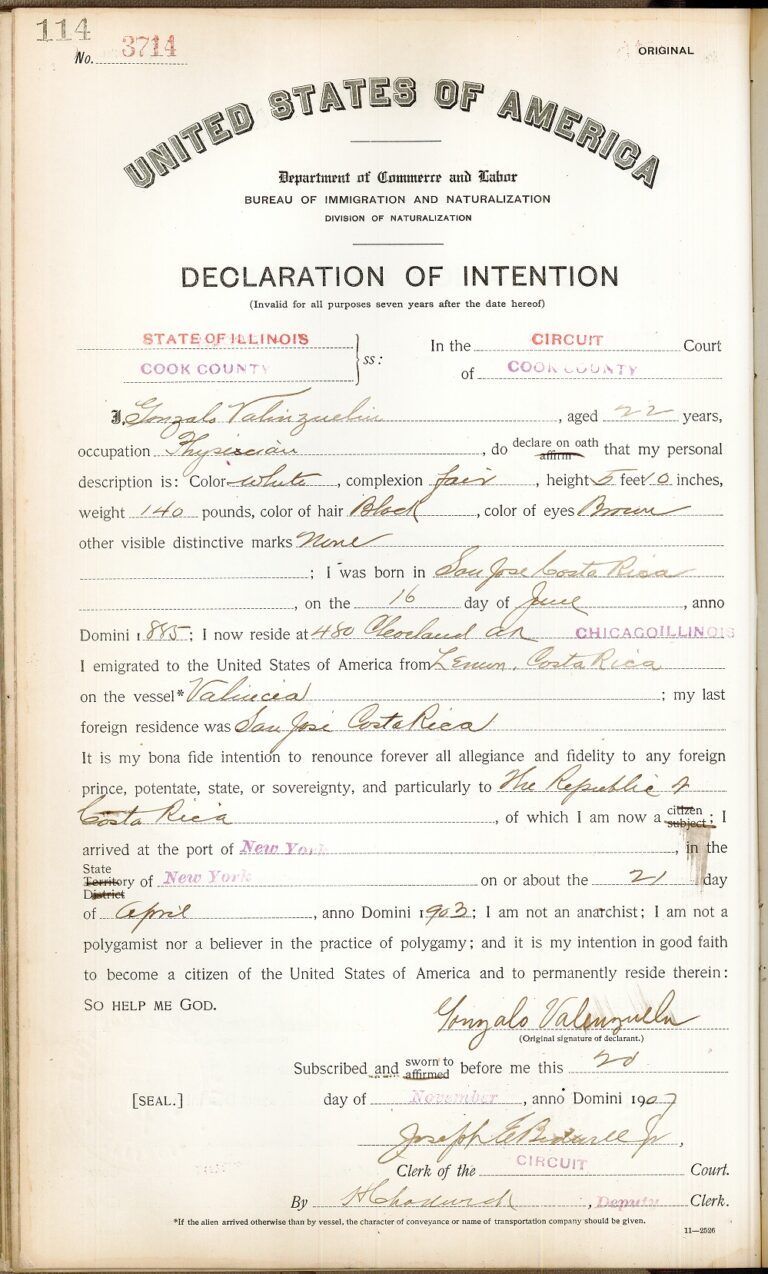 114
No. 3714
ORIGINAL
UNITED STATES OF AMERICA
Department of Commerce and Labor
BUREAU OF IMMIGRATION AND NATURALIZATION
DIVISION OF NATURALIZATION
DECLARATION OF INTENTION
(Invalid for all purposes seven years after the date hereof)
STATE OF ILLINOIS
COOK COUNTY
ss:
In the CIRCUIT Court
of COOK COUNTY
I, Gonzalo Valinzuelin, aged 22 years,
occupation Physician, do declare on oath affirm that my personal
description is: Color white, complexion fair, height 5 feet 10 inches,
weight 140 pounds, color of hair Black, color of eyes Brown
other visible distinctive marks None
; I was born in San Jose Costa Rica
, on the 16 day of June, anno
Domini 1885; I now reside at 480 Cleveland CHICAGO ILLINOIS
I emigrated to the United States of America from Lemon, Costa Rica
on the vessel* Valincia; my last
foreign residence was San José Costa Rica
It is my bona fide intention to renounce forever all allegiance and fidelity to any foreign
prince, potentate, state, or sovereignty, and particularly to The Republic of
Costa Rica, of which I am now a citizen subject; I
arrived at the port of New York, in the
State Territory District of New York on or about the 21 day
of April, anno Domini 1903; I am not an anarchist; I am not a
polygamist nor a believer in the practice of polygamy; and it is my intention in good faith
to become a citizen of the United States of America and to permanently reside therein:
SO HELP ME GOD.
Gonzalo Valenzuela
(Original signature of declarant.)
Subscribed and sworn to affirmed before me this 20
[SEAL.]
day of November, anno Domini 1907
Joseph E Bidwill Jr,
Clerk of the CIRCUIT Court.
By H Chadwick, Deputy Clerk.
*If the alien arrived otherwise than by vessel, the character of conveyance or name of transportation company should be given.
11—2526